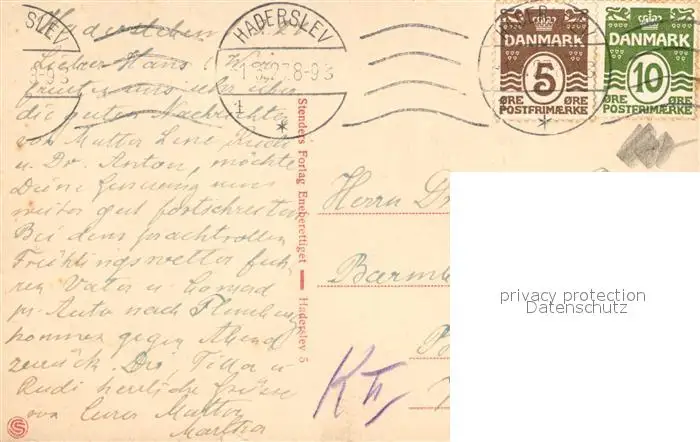 SLEV
HADERSLEV
8-9 S
DANMARK
5
ØRE ØRE
POSTFRIMÆRKE
DANMARK
10
ØRE ØRE
POSTFRIMÆRKE
Haderslev
Lieber Hans! Wir
freuten uns sehr über
die guten Nachrichten
von Mutter Lene, Rudi
u. Dr. Anton, möchte
Deine Genesung nun
weiter gut fortschreiten
Bei dem prachtvollen
Frühlingswetter fuh-
ren Vater u. Conrad
pr. Auto nach Flensburg
kommen gegen Abend
zurück. Dir, Tilla u.
Rudi herzliche Grüsse
von Eurer Mutter
Martha
Stenders Forlag Eneberettiget — Haderslev 5
Herrn Dr
privacy protection
Datenschutz